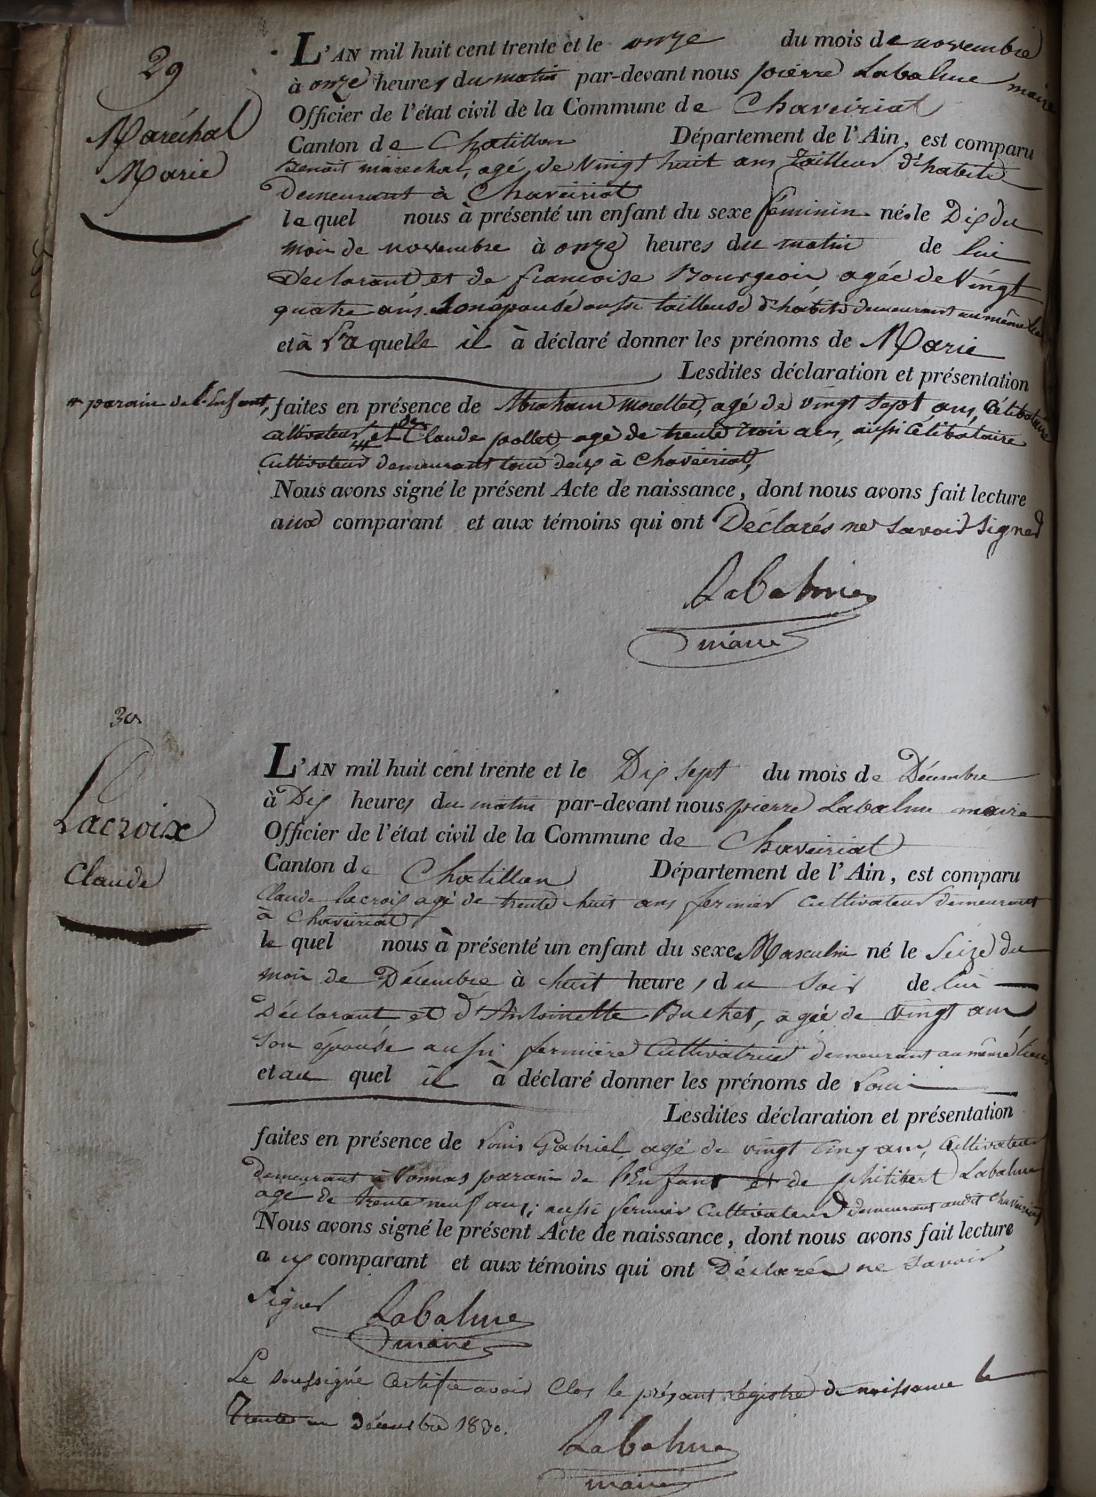 29
Maréchal
Marie
L'AN mil huit cent trente et le onze du mois de novembre
à onze heures du matin par-devant nous pierre Labalme maire
Officier de l'état civil de la Commune de Chaveiriat
Canton de Chatillon Département de l'Ain, est comparu
Benoit maréchal, agé de Vingt huit ans Tailleur d'habits
Demeurant à Chaveiriat
lequel nous à présenté un enfant du sexe féminin née le Dix du
mois de novembre à onze heures du matin de lui
Déclarant et de françoise Bourgeois agée de Vingt
quatre ans Son épouse aussi tailleuse d'habits demeurant au même lieu
et à Laquelle il à déclaré donner les prénoms de Marie
Lesdites déclaration et présentation
# parain de l'enfant,
faites en présence de Abraham Morellet, agé de vingt sept ans, Célibataire
Cultivateur # et de Claude pollet agé de trente trois ans, aussi Célibataire
Cultivateur demeurants tous deux à Chaveiriat,
Nous avons signé le présent Acte de naissance, dont nous avons fait lecture
aux comparant et aux témoins qui ont Déclarés ne savoir signer
Labalme
maire
30
Lacroix
Claude
L'AN mil huit cent trente et le Dix sept du mois de Décembre
à Dix heures du matin par-devant nous pierre Labalme maire
Officier de l'état civil de la Commune de Chaveiriat
Canton de Chatillon Département de l'Ain, est comparu
Claude Lacroix agé de trente huit ans fermier Cultivateur demeurant
à Chaveiriat
le quel nous à présenté un enfant du sexe Masculin né le Seize du
mois de Décembre à huit heures du Soir de lui
Déclarant et d'Antoinette Buchet, agée de vingt ans
Son épouse aussi fermière Cultivatrice demeurant au même lieu
et au quel il à déclaré donner les prénoms de Louis
Lesdites déclaration et présentation
faites en présence de Louis Gabriel agé de vingt Cinq ans, Cultivateur
demeurant à Vonnas parain de l'Enfant et de philibert Labalme
agé de trente neuf ans, aussi fermier Cultivateur demeurant audit Chaveiriat
Nous avons signé le présent Acte de naissance, dont nous avons fait lecture
aux comparant et aux témoins qui ont Déclarés ne savoir
Signer Labalme
maire
Le Soussigné Certifie avoir Clos le présant régistre de naissance le
Trente un Décembre 1830.
Labalme
maire